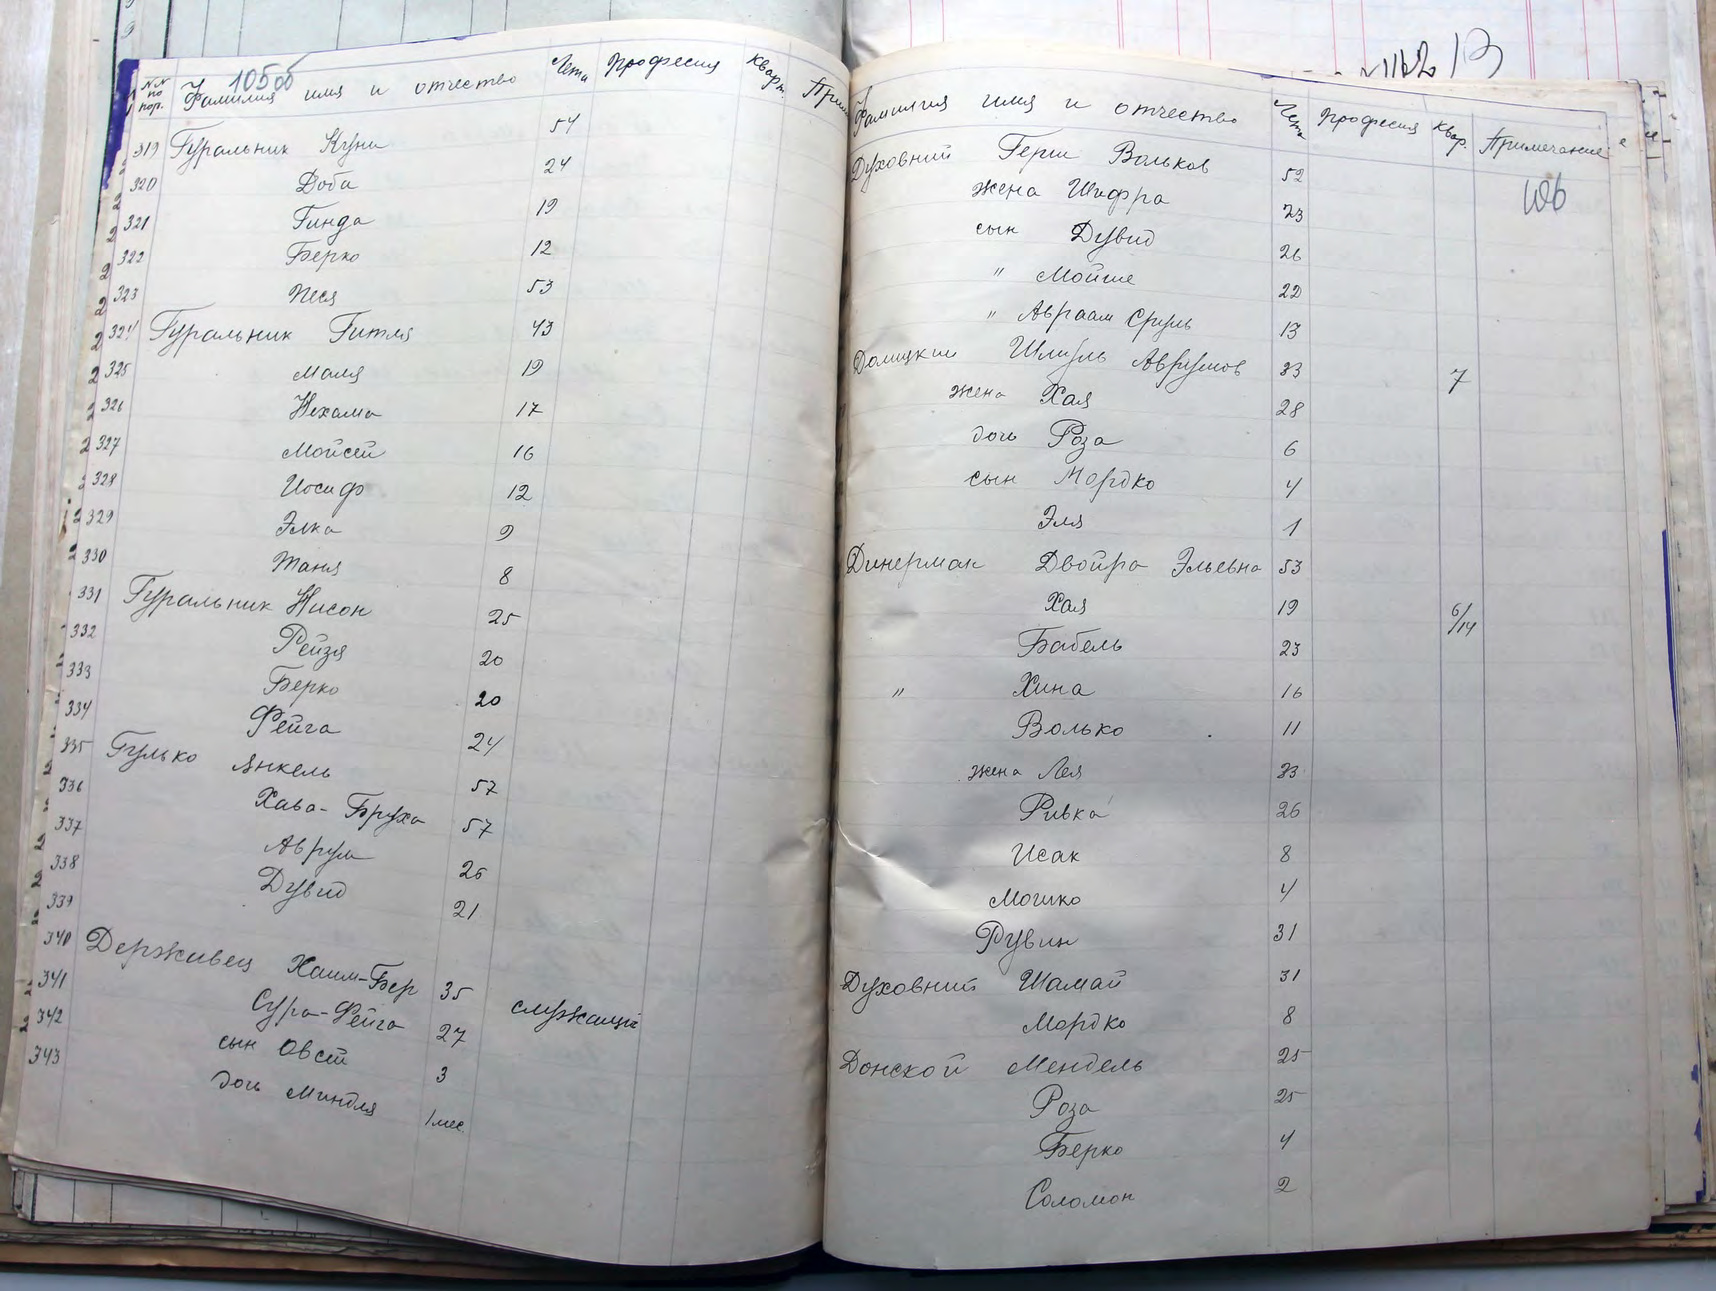 105об
NN по пор. Фамилия имя и отчество Лета Професия Кварт. Прим
319 Гуральник Куни 54
320 Доба 24
321 Гинда 19
322 Берко 12
323 Песя 53
324 Гуральник Гитля 43
325 Маля 19
326 Нехама 17
327 Мойсей 16
328 Иосиф 12
329 Элка 9
330 Таня 8
331 Гуральник Нисон 25
332 Рейзя 20
333 Берко 20
334 Фейга 24
335 Гулько Янкель 57
336 Хава-Бруха 57
337 Аврум 26
338 Дувид 21
339
340 Держивец Хаим-Бер 35 служащий
341 Сура-Фейга 27
342 сын Овсей 3
343 дочь Миндля 1 мес.
Фамилия имя и отчество Лета Професия Квар. Примечание
106
Духовний Герш Вольков 52
жена Шифра
сын Дувид 26
" Мойше 22
" Авраам Сруль 13
Долицкий Шмуль Аврумов 33 7
жена Хая 28
дочь Роза 6
сын Мордко 4
Эля 1
Динерман Двойра Эльевна 53
Хая 19 6/14
Бабель 23
" Хина 16
Волько 11
жена Лея 33
Ривка 26
Исак 8
Мошко 4
Рувин 31
Духовний Шамай 31
Мордко 8
Донской Мендель 25
Роза 25
Берко 4
Соломон 2